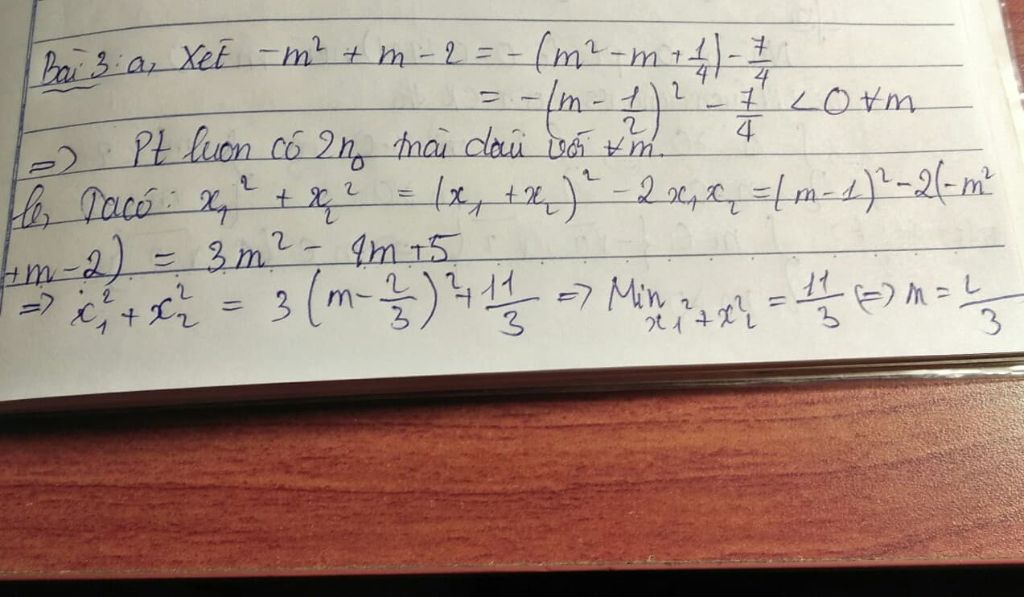 Bài 3: a, Xét -m² + m - 2 = -(m² - m + 1/4) - 7/4
= -(m - 1/2)² - 7/4 < 0 ∀m
=> Pt luon có 2n₀ trái dấu với ∀m.
b, Tacó: x₁² + x₂² = (x₁ + x₂)² - 2x₁x₂ = (m - 1)² - 2(-m²
+m - 2) = 3m² - 4m + 5
=> x₁² + x₂² = 3(m - 2/3)² + 11/3 => Min x₁² + x₂² = 11/3 (=> m = 2/3